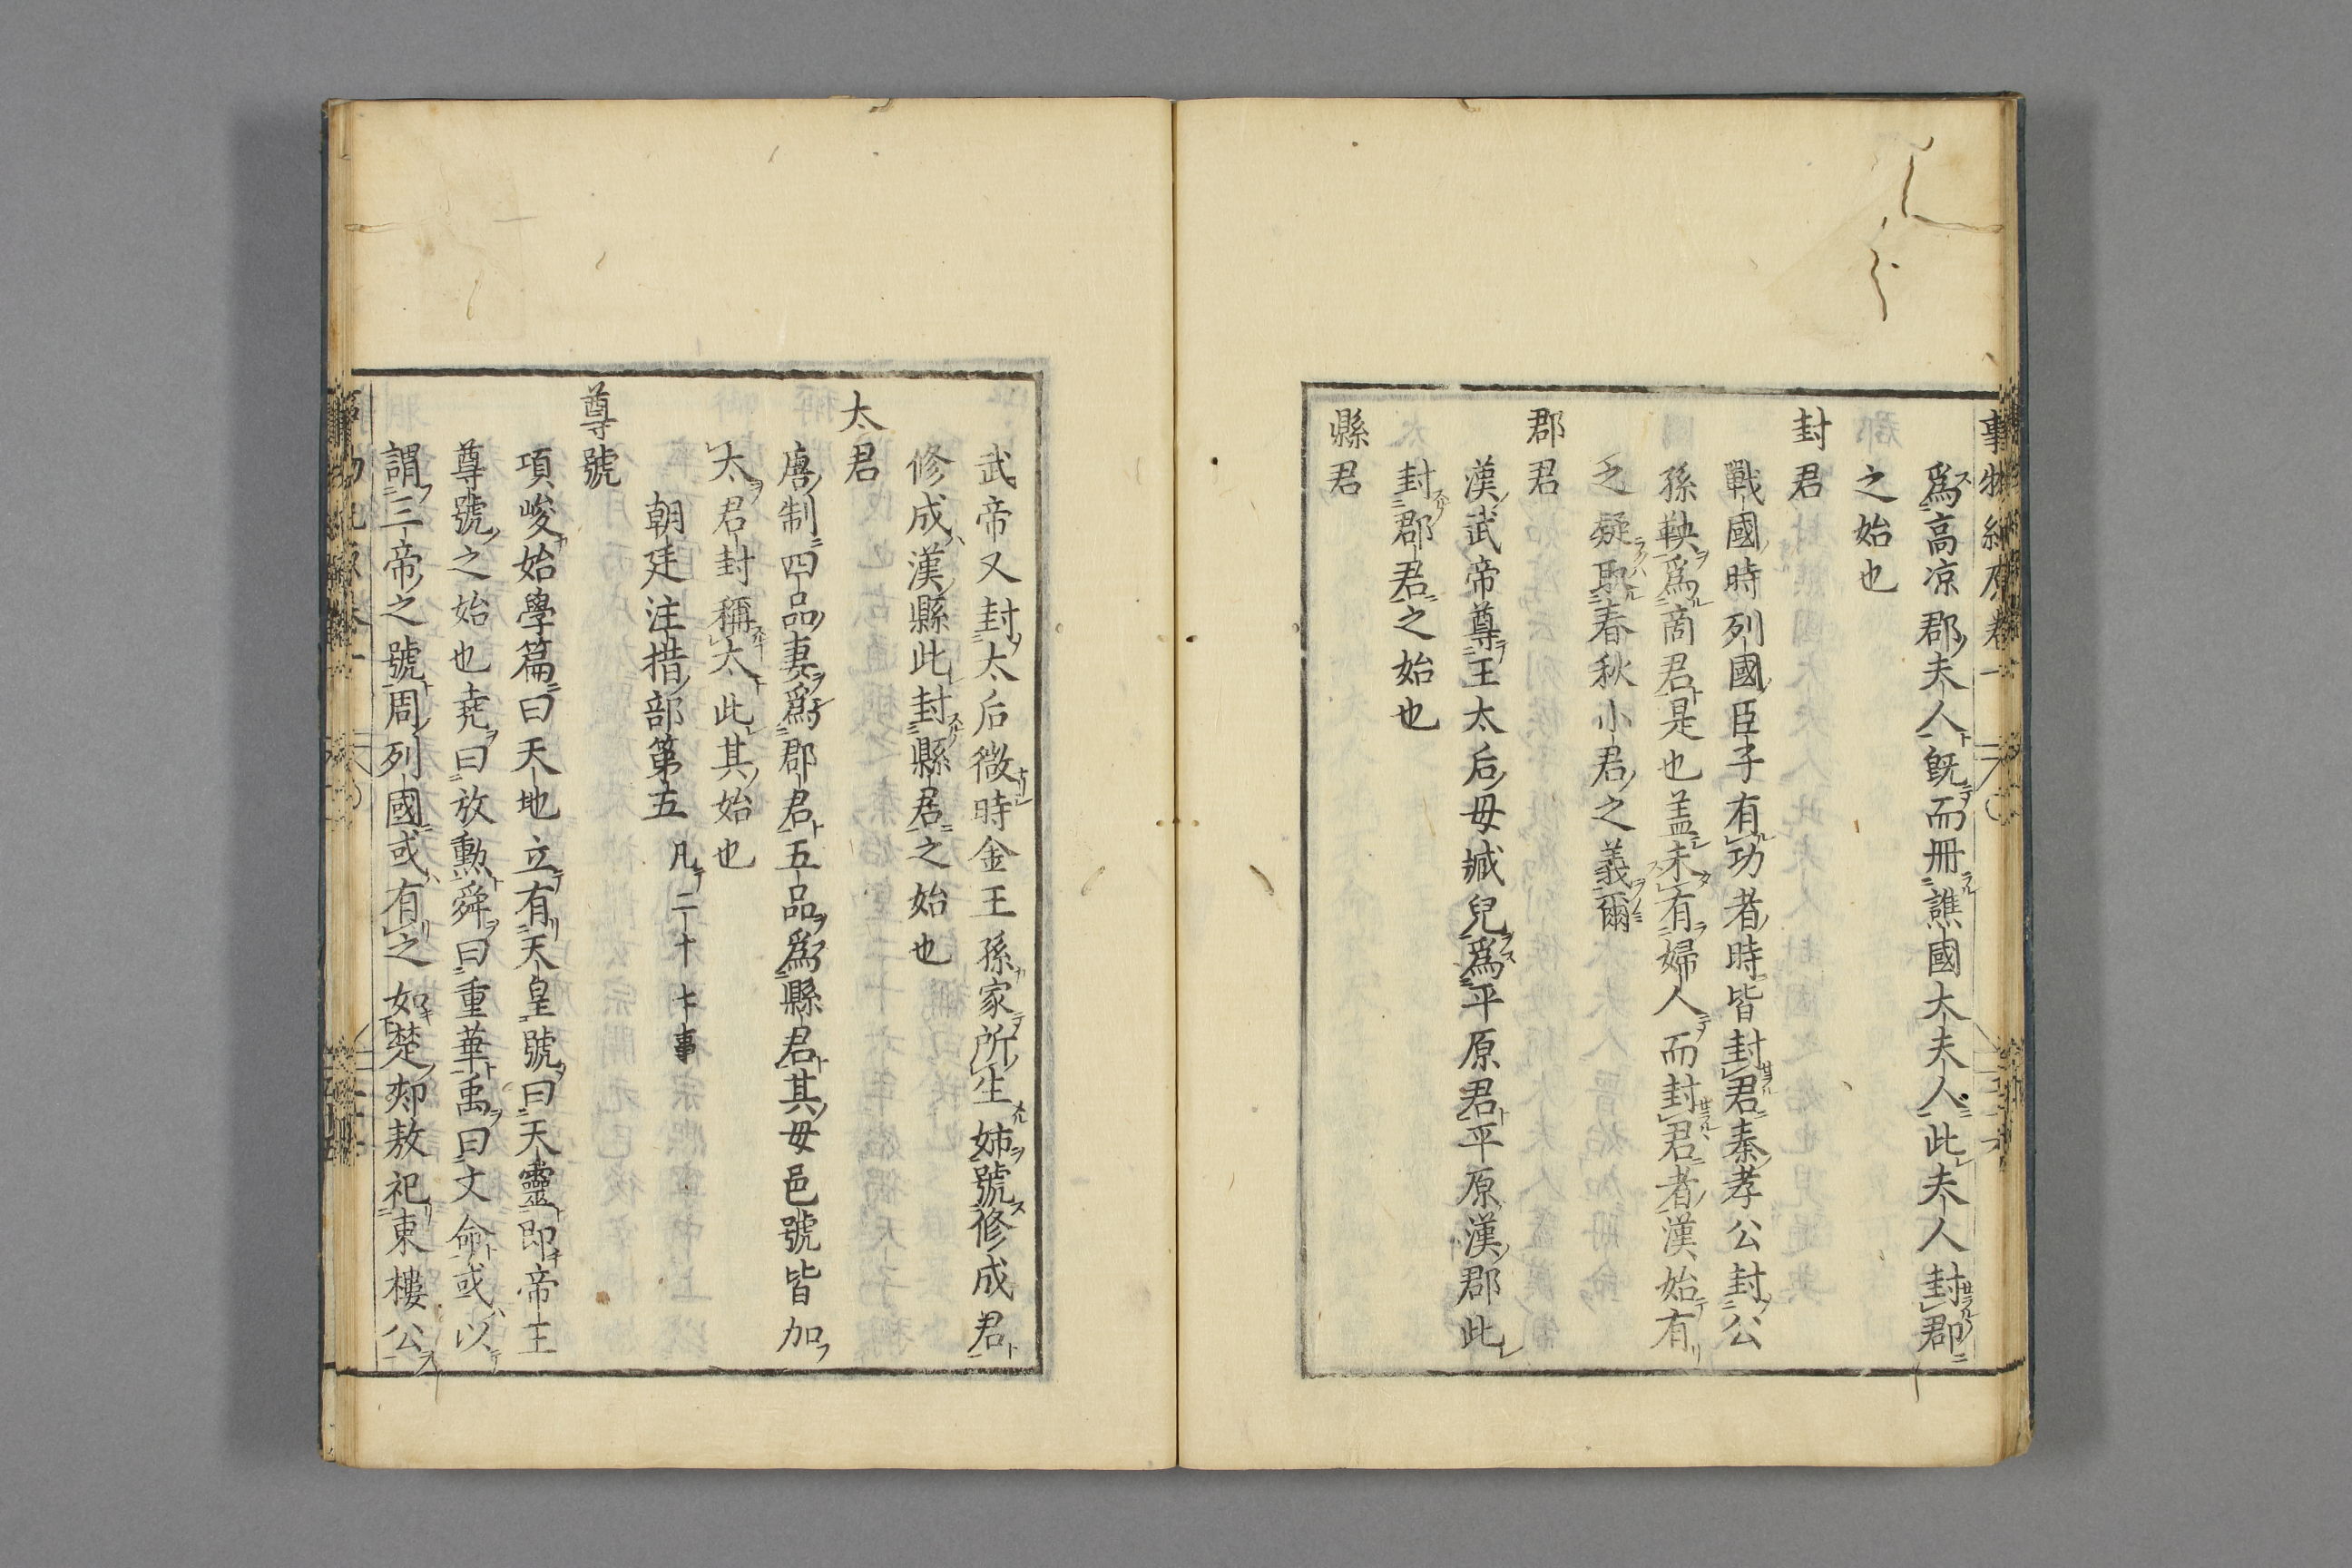 事物紀原卷一
爲高凉郡夫人旣而冊譙國太夫人此夫人封郡
之始也
封君
戰國時列國臣子有功者時皆封君秦孝公封公
孫鞅爲商君是也盖未有婦人而封君者漢始有
之疑取春秋小君之義爾
郡君
漢武帝尊王太后母臧兒爲平原君平原漢郡此
封郡君之始也
縣君
武帝又封太后微時金王孫家所生姊號修成君
修成漢縣此封縣君之始也
太君
唐制四品妻爲郡君五品爲縣君其母邑號皆加
太君封稱太此其始也
朝廷注措部第五 凡二十七事
尊號
項峻始學篇曰天地立有天皇號曰天靈即帝王
尊號之始也堯曰放勲舜曰重華禹曰文命或以
謂三帝之號周列國或有之如楚郟敖祀東樓公